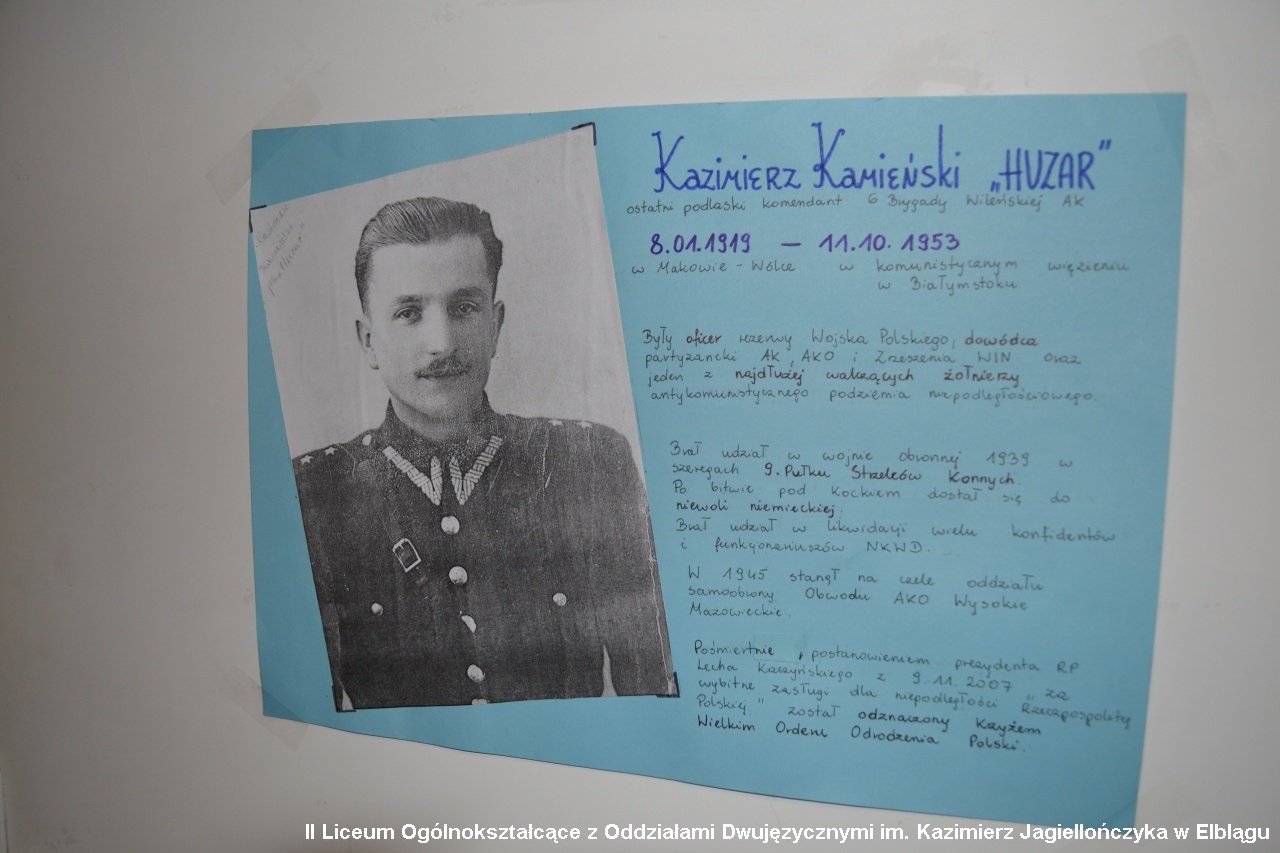 Kazimierz Kamieński „HUZAR"
ostatni podlaski komendant 6 Brygady Wileńskiej AK
8.01.1919 — 11.10.1953
w Makowie - Wólce w komunistycznym więzieniu
w Białymstoku
Były oficer rezerwy Wojska Polskiego, dowódca
partyzancki AK, AKO i Zrzeszenia WIN oraz
jeden z najdłużej walczących żołnierzy
antykomunistycznego podziemia niepodległościowego.
Brał udział w wojnie obronnej 1939 w
szeregach 9. Pułku Strzelców Konnych.
Po bitwie pod Kockiem dostał się do
niewoli niemieckiej.
Brał udział w likwidacji wielu konfidentów
i funkcjonariuszów NKWD.
W 1945 stanął na czele oddziału
samoobrony Obwodu AKO Wysokie
Mazowieckie.
Pośmiertnie, postanowieniem prezydenta RP
Lecha Kaczyńskiego z 9.11.2007 „za
wybitne zasługi dla niepodległości Rzeczpospolitej
Polskiej" został odznaczony Krzyżem
Wielkim Orderu Odrodzenia Polski.
II Liceum Ogólnokształcące z Oddziałami Dwujęzycznymi im. Kazimierz Jagiellończyka w Elblągu